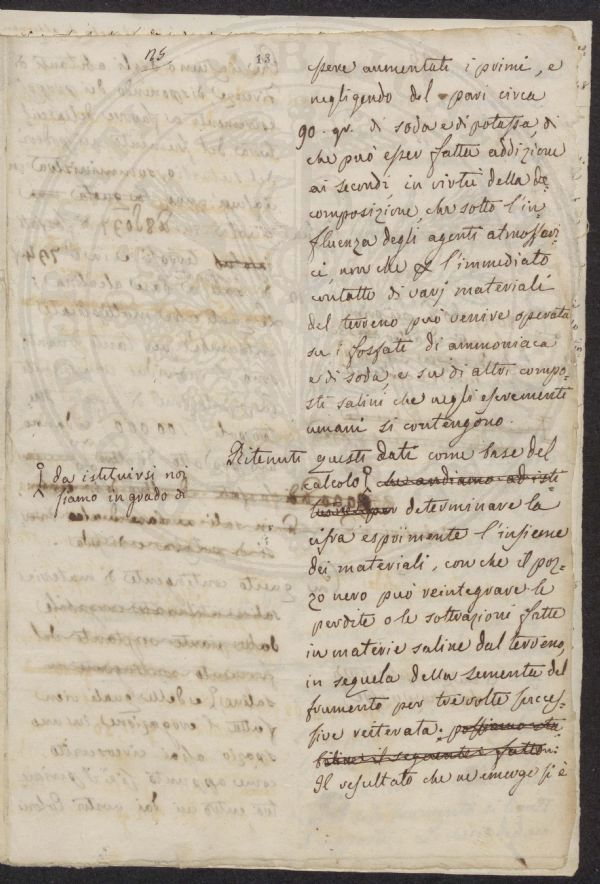 125 13.
ssere aumentati i primi, e
negligendo del pari circa
90. gr. di soda e di potassa, di
che può esser fatta addizione
ai secondi in virtù della de
composizione, che sotto l'in=
fluenza degli agenti atmosferi=
ci, non che l'immediato
contatto di varj materiali
del terreno può venire operata
su i fosfati di ammoniaca
e di soda, e su di altri compo=
sti salini che negli escrementi
umani si contengono.
Ritenuti questi dati come base del
calcolo che andiamo ad isti
determinare la
cifra esprimente l'insieme
dei materiali, con che il poz=
zo nero può reintegrare le
perdite o le sottrazioni fatte
in materie saline dal terreno,
in seguela della sementa del
frumento per tre volte succes=
sive reiterata. possiamo sta
bilire il seguente fatto:
Il resultato che ne emerge si è
da istituirsi noi
siamo in grado di